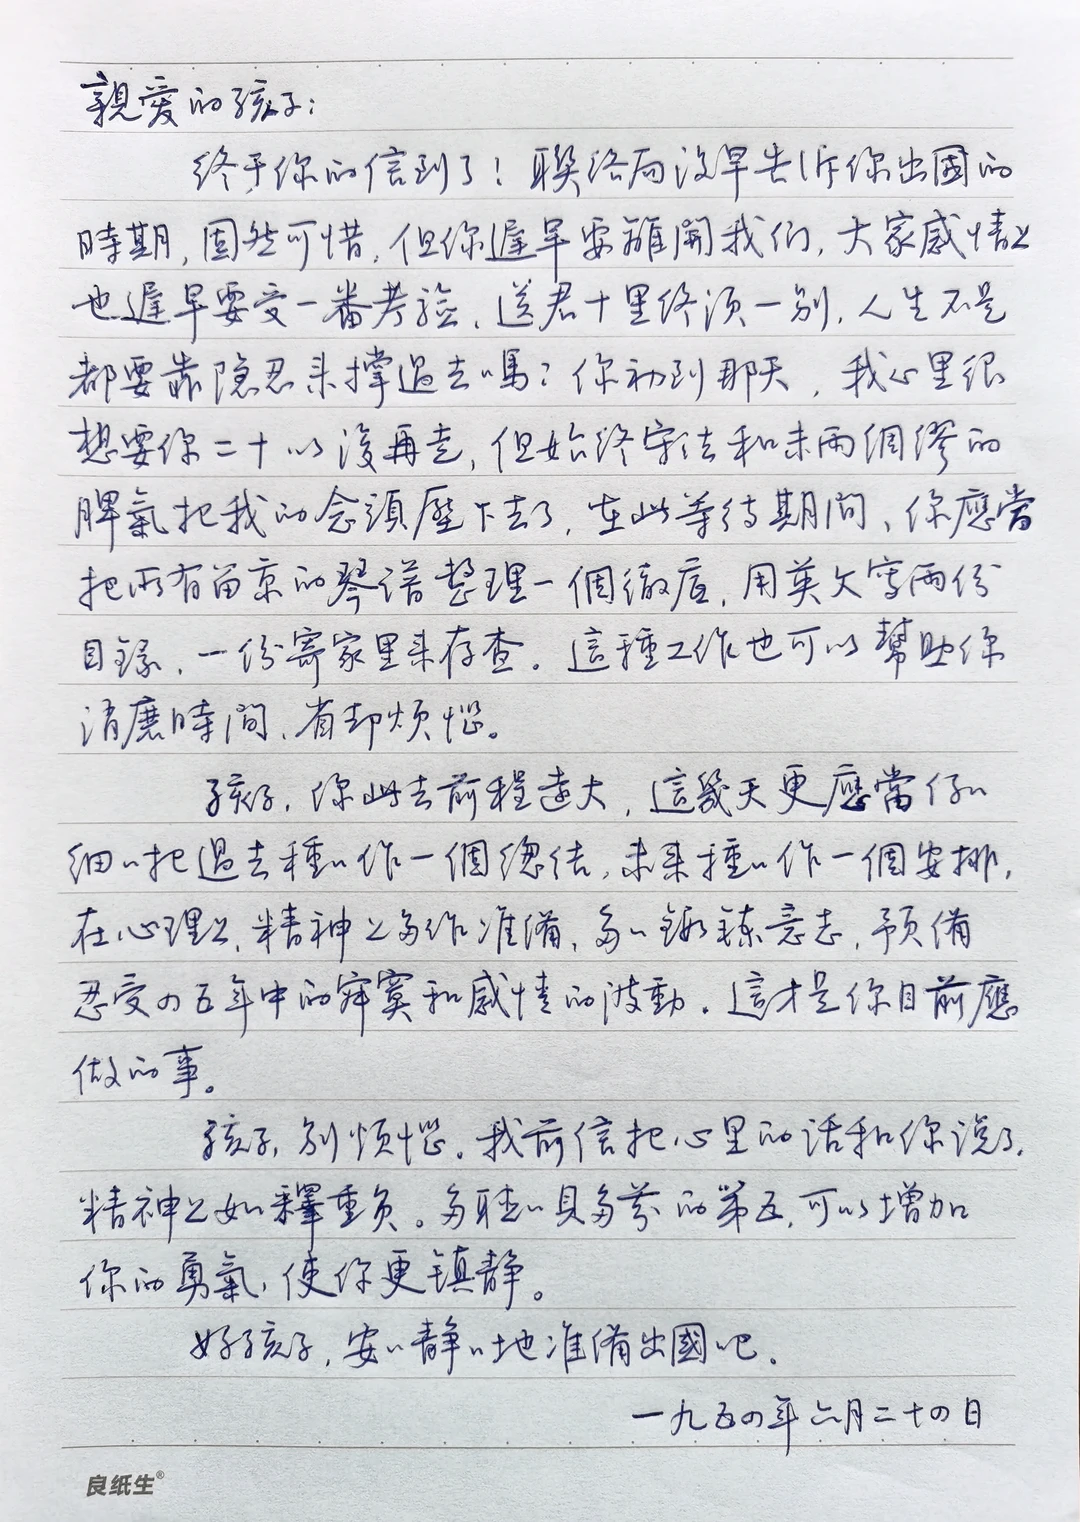 親愛的孩子：
终于你的信到了！聯络局没早告诉你出國的
時期，固然可惜，但你遲早要離開我们，大家感情上
也遲早要受一番考验，送君十里终须一别，人生不是
都要靠隐忍来撑過去嗎？你初到那天，我心里很
想要你二十以後再走，但始终守法和未雨绸缪的
脾氣把我的念頭壓下去了，在此等待期間，你應當
把所有留京的琴谱整理一個徹底，用英文寫兩份
目録，一份寄家里来存查。這種工作也可以幫助你
消磨時間，省却烦恼。
孩子，你此去前程遠大，這幾天更應當仔〃
细〃把過去種〃作一個總结，未来種〃作一個安排，
在心理上，精神上多作准備，多〃鍛鍊意志，預備
忍受四五年中的寂寞和感情的波動。這才是你目前應
做的事。
孩子，别烦恼。我前信把心里的话和你说了，
精神上如釋重负。多聴〃貝多芬的第五，可以增加
你的勇氣，使你更镇静。
好孩子，安〃静〃地准備出國吧。
一九五四年六月二十四日
良纸生®